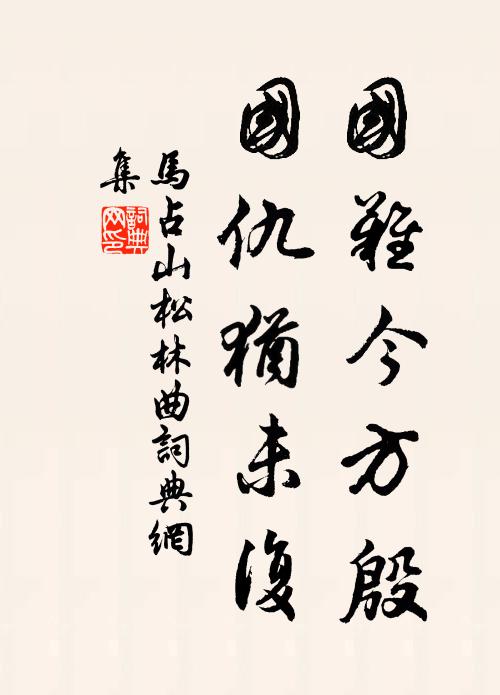 國難今方殷
國仇猶未復
馬占山松林曲詞典網
集
詞典
网印